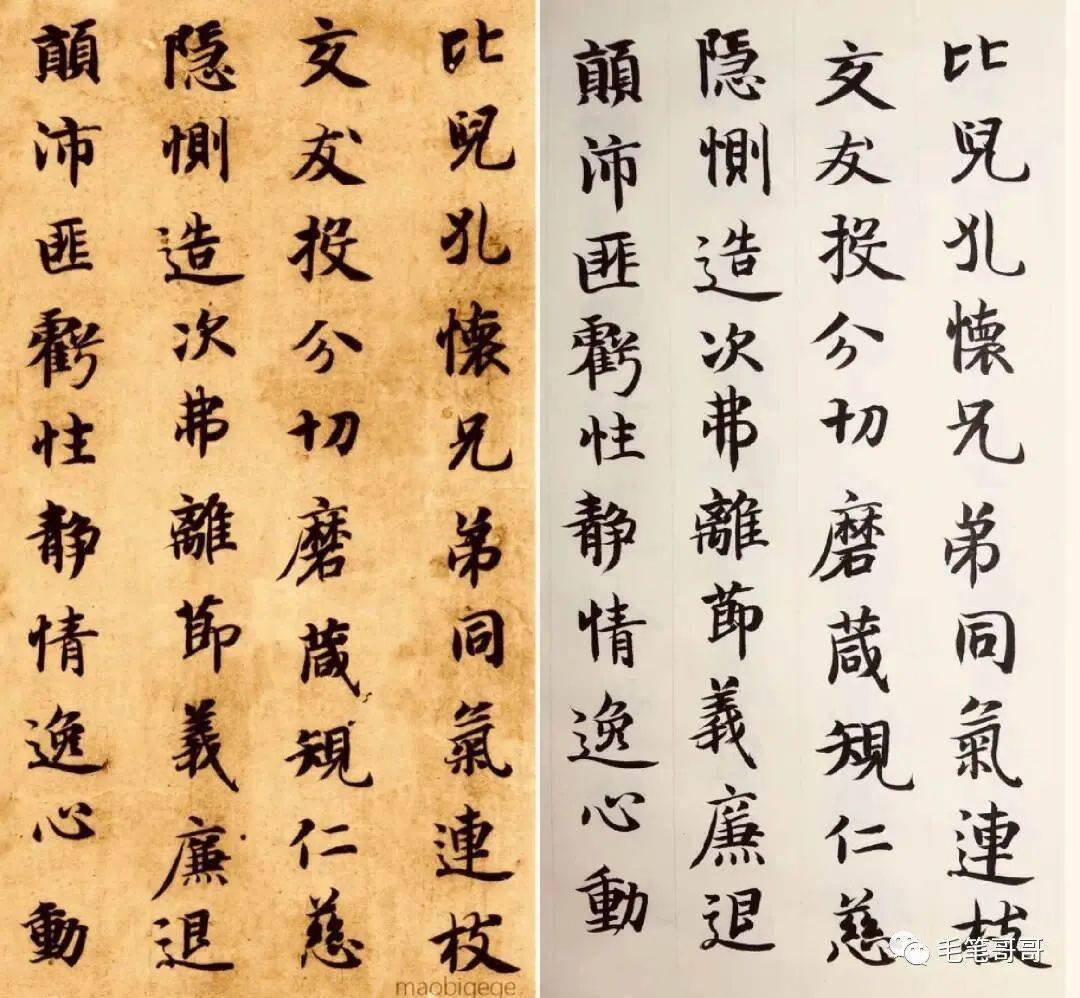 比兒孔懷兄弟同氣連枝
交友投分切磨葴規仁慈
隐惻造次弗離莭義廉退
顛沛匪虧性静情逸心動
maobigege
比兒孔懷兄弟同氣連枝
交友投分切磨葴規仁慈
隐惻造次弗離莭義廉退
顛沛匪虧性静情逸心動
毛笔哥哥